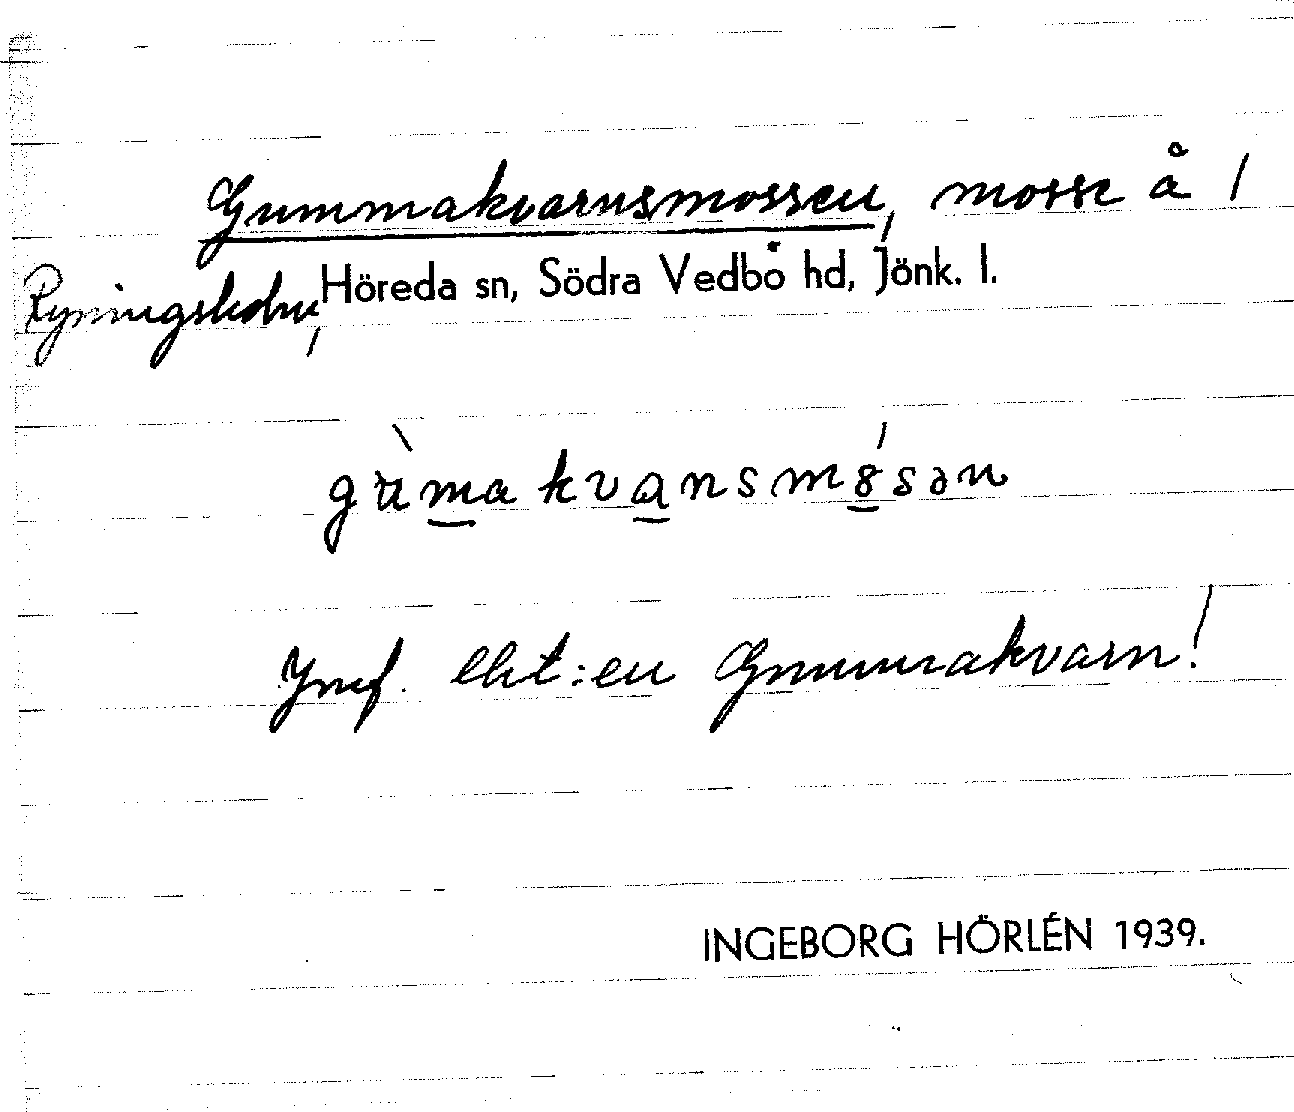 Gummakvarnsmossen, mosse å /
Ryningsholm, Höreda sn, Södra Vedbo hd, Jönk. l.
gùmakvansmósən
Jmf. eht:en Gummakvarn!
INGEBORG HÖRLÉN 1939.